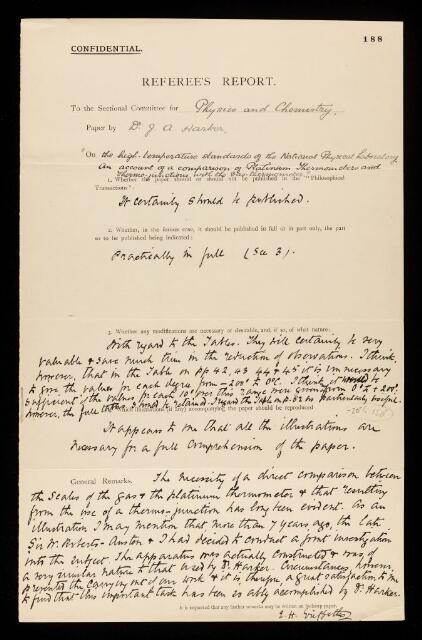 188
CONFIDENTIAL.
REFEREE'S REPORT.
To the Sectional Committee for Physics and Chemistry.
Paper by Dr. J A Harker.
"On the high-temperature standards of the National Physical Laboratory
An account of a comparison of Platinum Thermometers and
Thermo-junctions with the Gas-thermometer."
1. Whether the paper should or should not be published in the "Philosophical
Transactions":
It certainly should be published.
2. Whether, in the former case, it should be published in full or in part only, the part
so to be published being indicated:
Practically in full (See 3).
3. Whether any modifications are necessary or desirable, and, if so, of what nature:
With regard to the Tables. They will certainly be very
valuable & save much time in the reduction of observations. I think,
however, that in the Table on pp 42, 43 44 & 45 it is unnecessary
to give the values for each degree from -200° to 0°C. I think it would be
sufficient if the values for each 10° over this range were given from 0° to +200°.
However, the full should be retained. I regard the Table on p. 52 as particularly useful.
illustrations (if any) accompanying the paper should be reproduced
It appears to me that all the illustrations are
necessary for a full comprehension of the paper.
General Remarks. The necessity of a direct comparison between
the scales of the gas & the platinum thermometer & that resulting
from the use of a thermo-junction has long been evident. As an
illustration I may mention that more than 7 years ago, the late
Sir W. Roberts-Austen & I had decided to conduct a joint investigation
into the subject. The apparatus was actually constructed & was of
a very similar nature to that used by Dr. Harker. Circumstances, however,
prevented the carrying out of our work & it is, therefore, a great satisfaction to me
to find that this important task has been so ably accomplished by Dr. Harker.
It is requested that any further remarks may be written on foolscap paper.
E. H. Griffiths